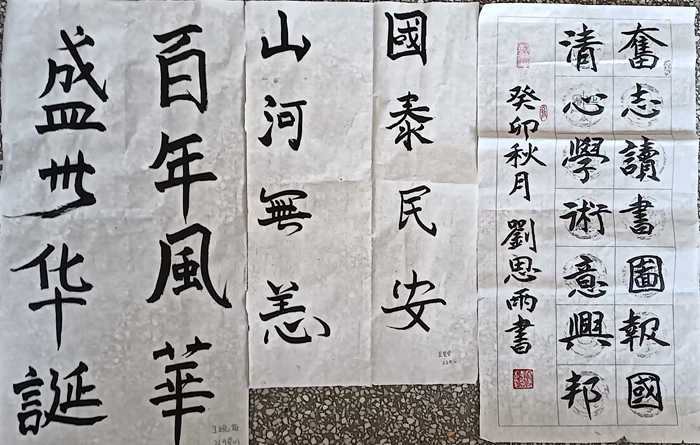 奮志讀書圖報國
清心學術意興邦
癸卯秋月 劉思雨書
國泰民安
山河無恙
百年風華
盛世华誕